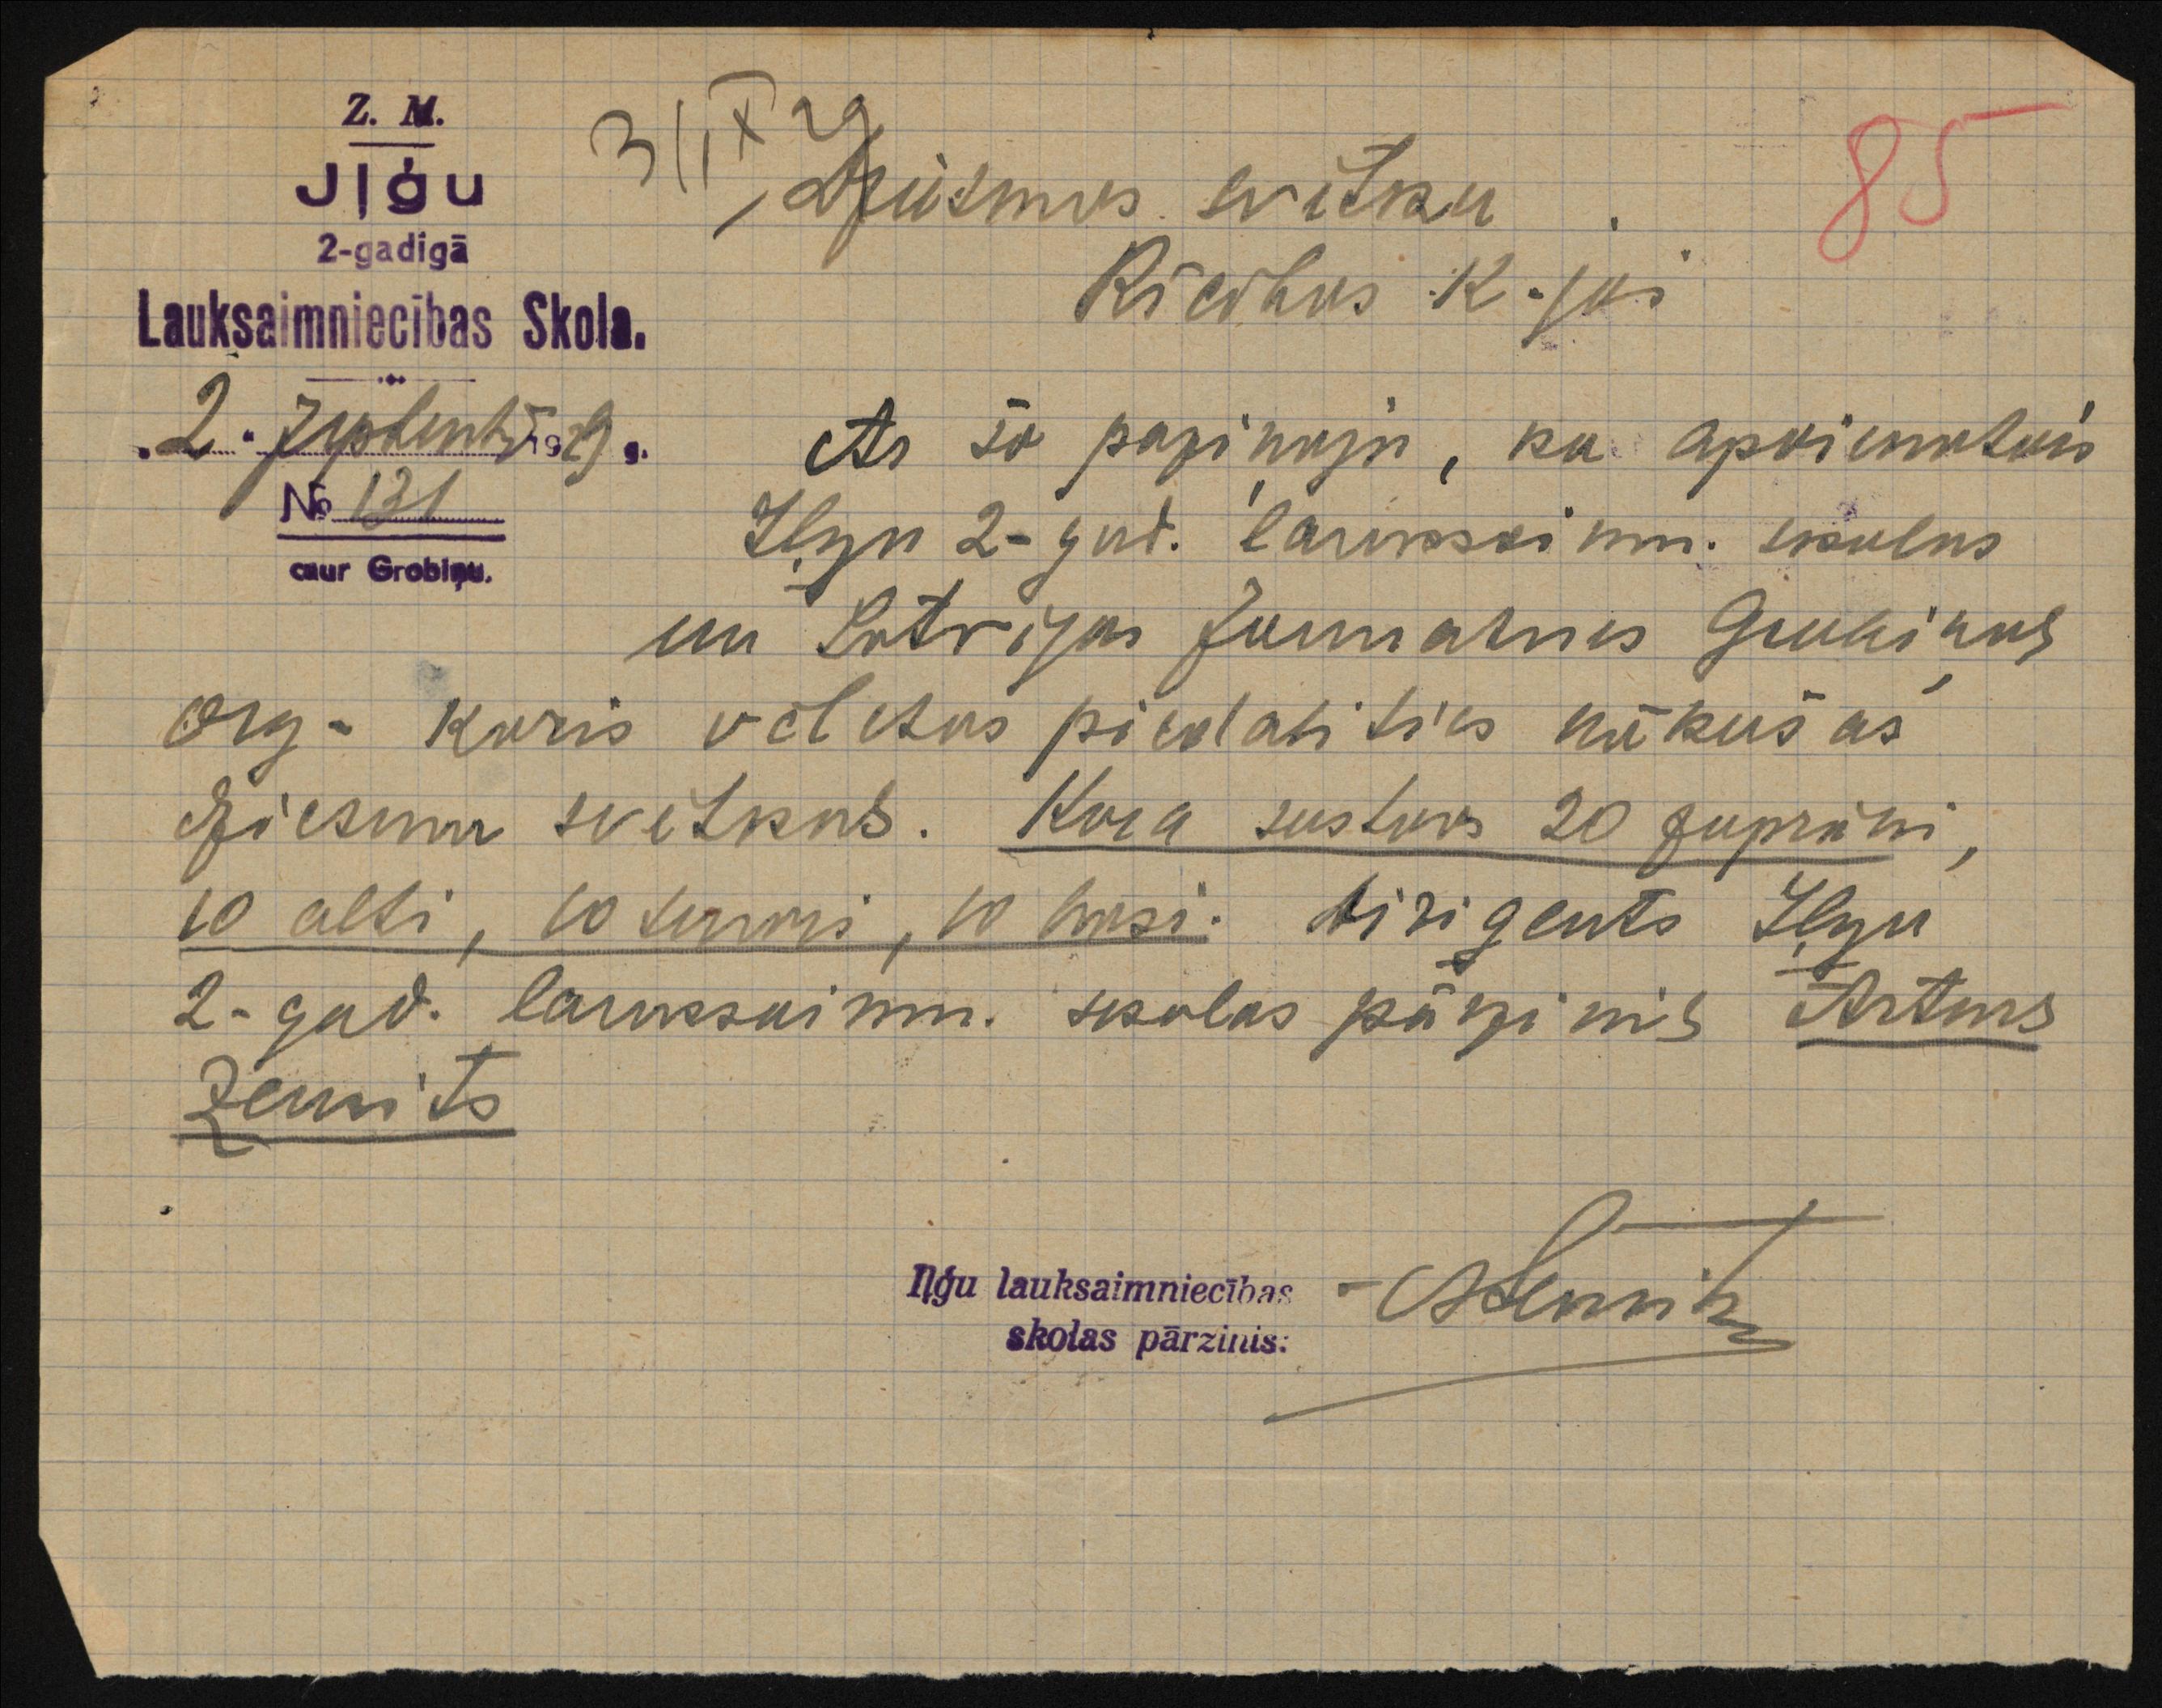 Z. M.
Jļģu
2-gadigā
Lauksaimniecības Skola.
"2." Septembrī 1929 g.
№ 131
caur Grobiņu.
3/IX 29
85
Dziesmas svētku
Rīcības K-jai
Ar šo paziņoju, ka apvienotais
Iļģu 2-gad. lauksaimn. skolas
un Latvijas Jaunatnes Grobiņas
org- koris vēlētos piedalīties nākušās
dziesmu svētkos. Kora sastavs 20 soprāni,
10 alti, 10 tenori, 10 basi. dirigents Iļģu
2-gad. lauksaimn. skolas pārzinis Arturs
Zemits
Iļģu lauksaimniecības
skolas pārzinis: